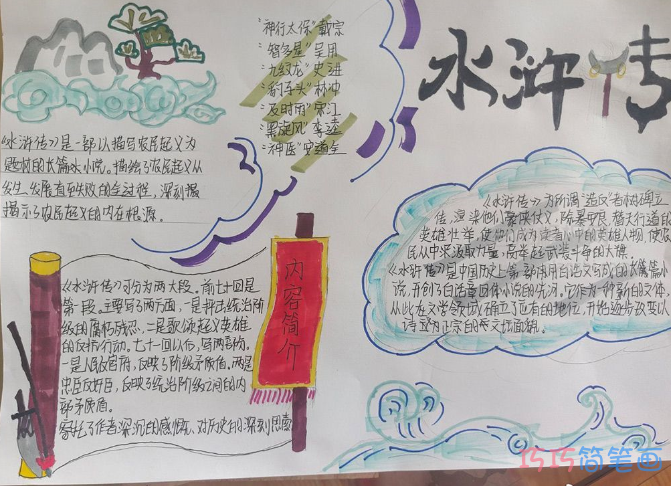 水浒传
"神行太保"戴宗
"智多星"吴用
"九纹龙"史进
"豹子头"林冲
"及时雨"宋江
"黑旋风"李逵
"神医"安道全
《水浒传》是一部以描写农民起义为
题材的长篇小说。描绘了农民起义从
发生、发展直至失败的全过程,深刻揭
揭示了农民起义的内在根源。
《水浒传》为所谓"造反"者树碑立
传,渲染他们豪侠仗义,除暴安良,替天行道的
英雄壮举,使他们成为读者心中的英雄人物,使
民从中汲取力量,高举起武装斗争的大旗。
《水浒传》是中国历史上第一部用白话文写成的长篇小
说,开创了白话章回体小说的先河。它作为一种新的文体,
从此在文学领域确立了应有的地位,开始逐步改变以
诗望为正宗的文坛面貌。
内容简介
《水浒传》可分为两大段,前七十回是
第一段。主要写了两方面,一是抨击统治阶
级的腐朽残忍,二是歌颂起义英雄
的反抗行动。七十一回以后,写两
一是人民
忠臣反奸臣,反映了统治阶级之间的内
部矛盾。
寄托了作者深沉的感慨、对历史的深刻思索
巧巧简笔画